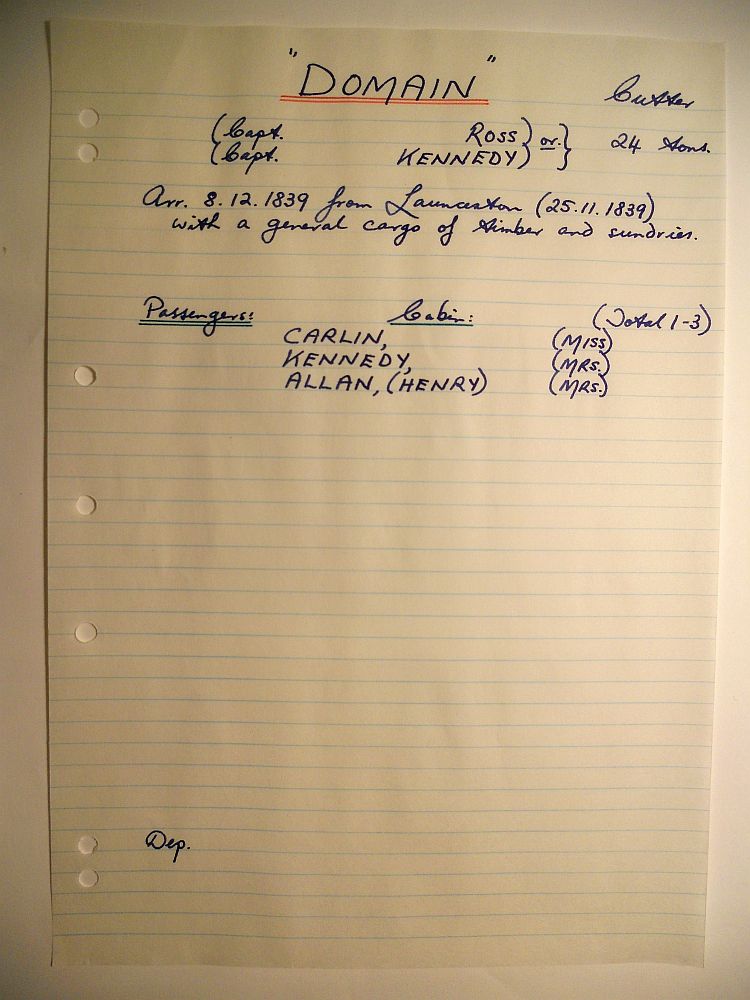 "DOMAIN" Cutter
(Capt. ROSS) or. } 24 tons.
(Capt. KENNEDY)
Arr. 8.12.1839 from Launceston (25.11.1839)
with a general cargo of timber and sundries.
Passengers: Cabin: (Total 1-3)
CARLIN, (MISS)
KENNEDY, (MRS.)
ALLAN, (HENRY) (MRS.)
Dep.